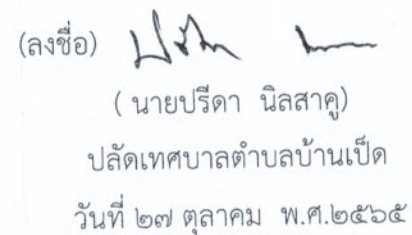 (ลงชื่อ)
( นายปรีดา นิลสาคู)
ปลัดเทศบาลตำบลบ้านเป็ด
วันที่ ๒๗ ตุลาคม พ.ศ.๒๕๖๕